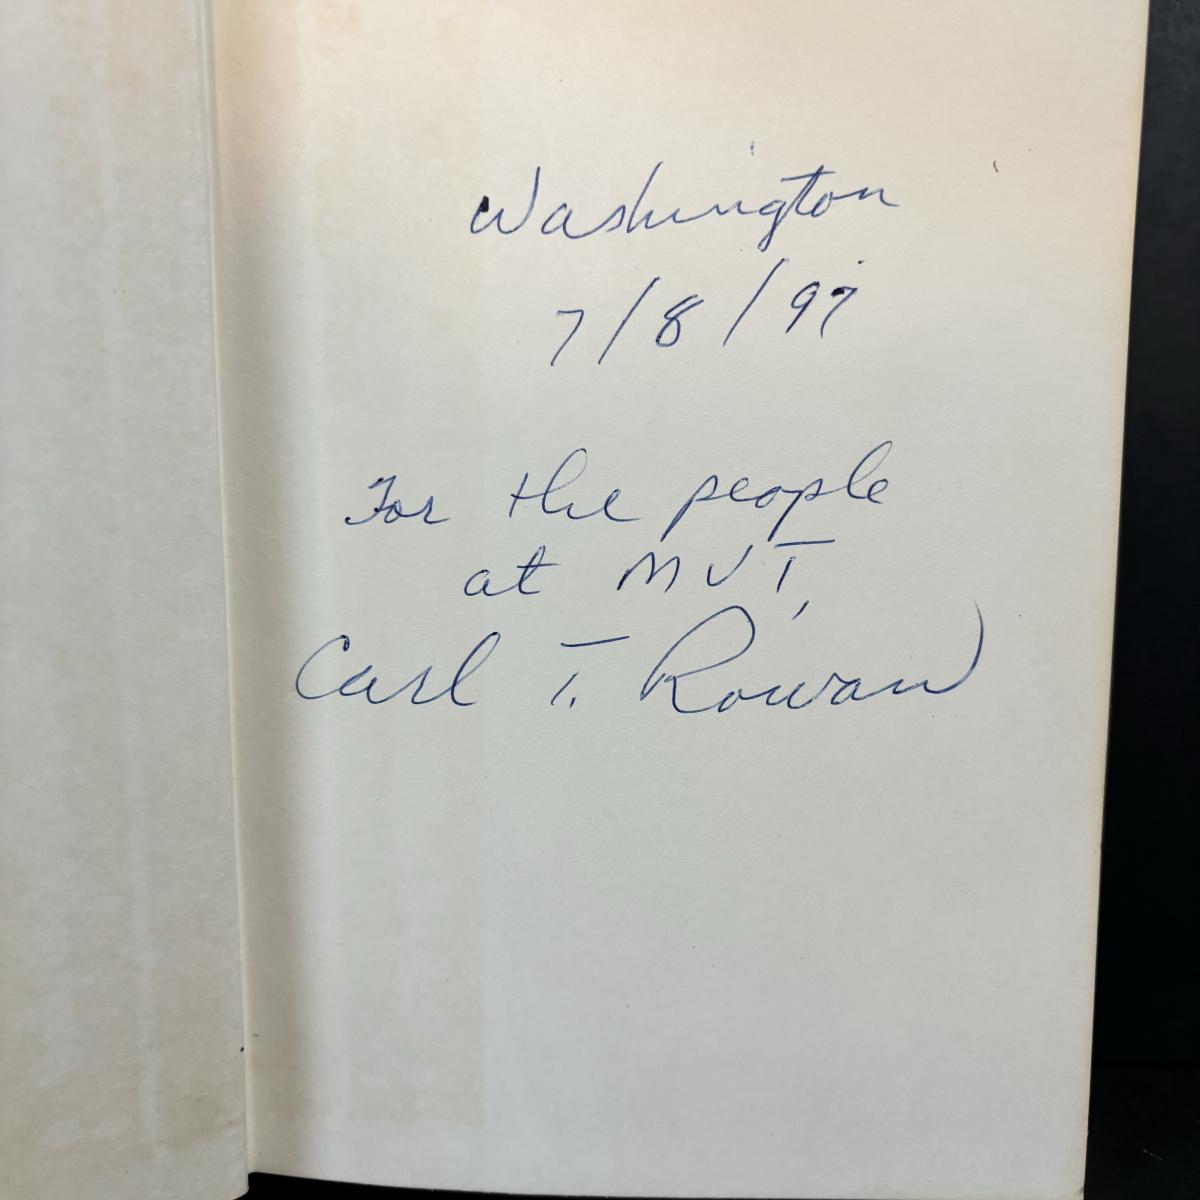 Washington
7/8/97
For the people
at MVT,
Carl T. Rowan